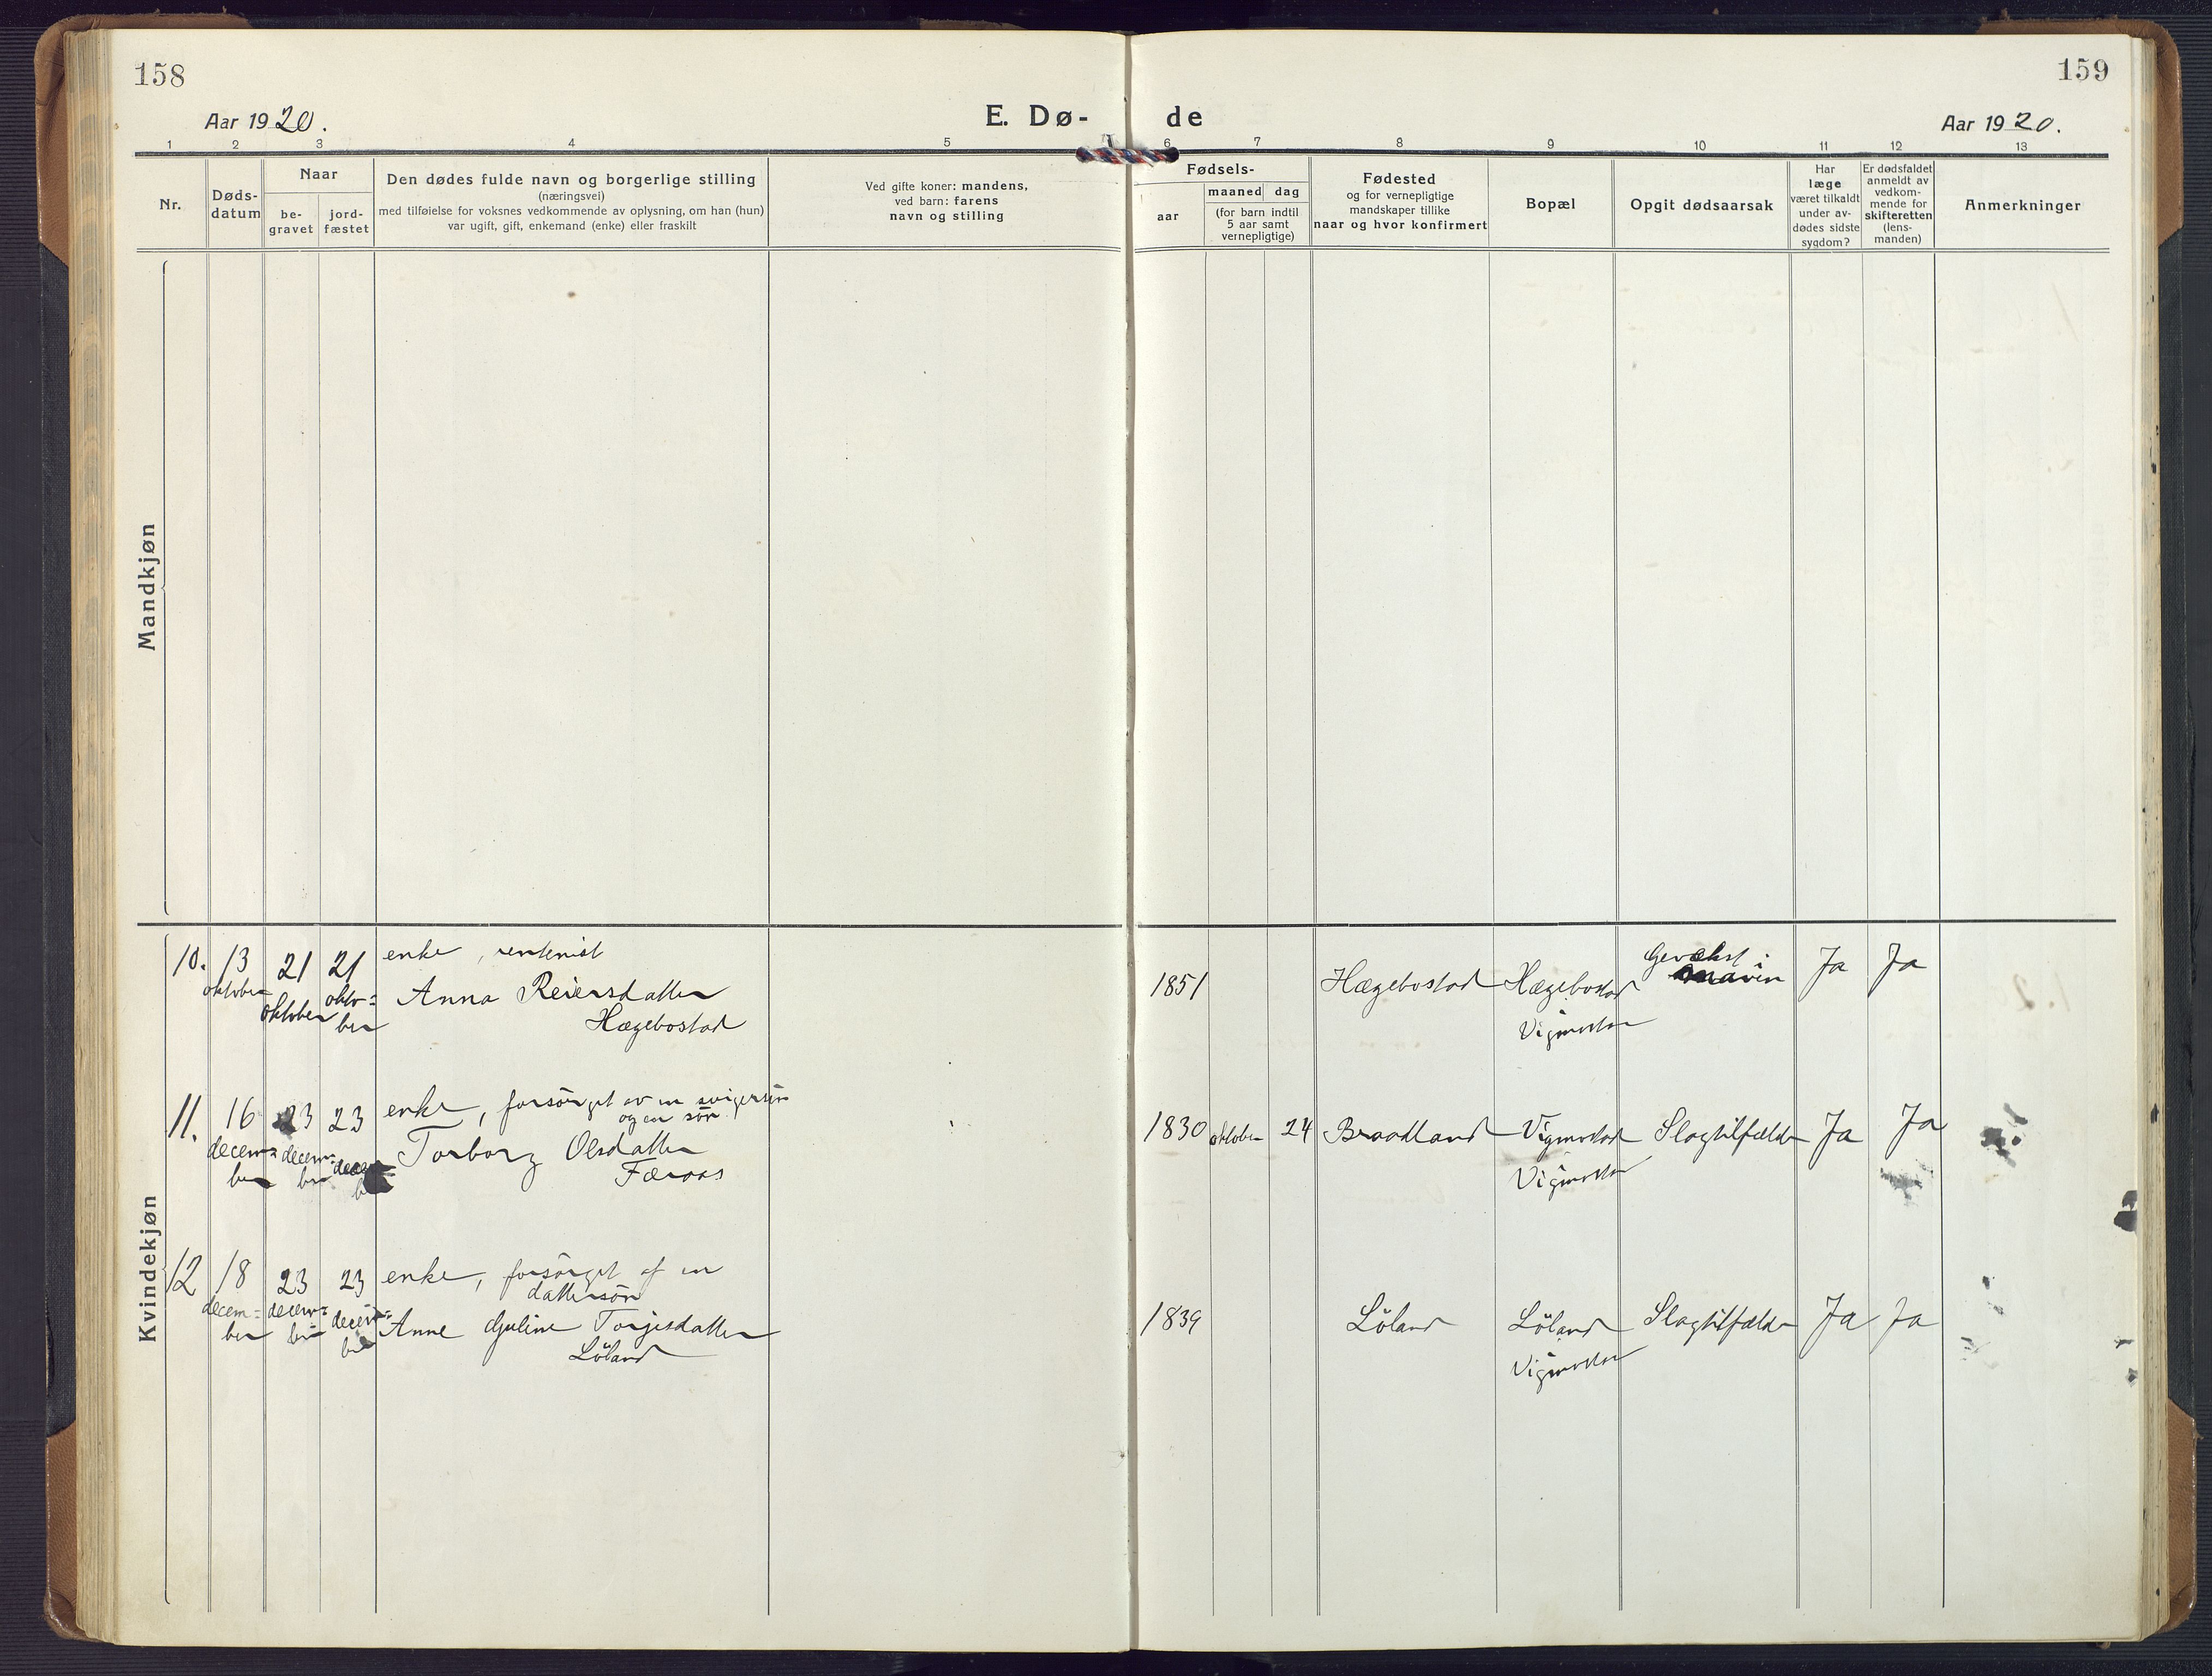 158
159
Aar 1920.
E. Dø-
de
Aar 1920.
1 2 3 4 5 6 7 8 9 10 11 12 13
Nr.
Døds-
datum
Naar
be-
gravet
jord-
fæstet
Den dødes fulde navn og borgerlige stilling
(næringsvei)
med tilføielse for voksnes vedkommende av oplysning, om han (hun)
var ugift, gift, enkemand (enke) eller fraskilt
Ved gifte koner: mandens,
ved barn: farens
navn og stilling
Fødsels-
aar
maaned
dag
(for barn indtil
5 aar samt
vernepligtige)
Fødested
og for vernepligtige
mandskaper tillike
naar og hvor konfirmert
Bopæl
Opgit dødsaarsak
Har
læge
været tilkaldt
under av-
dødes sidste
sygdom?
Er dødsfaldet
anmeldt av
vedkom-
mende for
skifteretten
(lens-
manden)
Anmerkninger
Mandkjøn
Kvindekjøn
10.
13
oktober
21
oktober
21
okto=
ber
enke, rentenist
Anna Reiersdatter
Hægebostad
1851
Hægebostad
Hægebostad
Vigmostad
Gevækst i
maven
Ja
Ja
11.
16
decem=
ber
23
decem=
ber
23
decem=
ber
enke, forsörget av en svigersön
og en sön
Torborg Olsdatter
Færaas
1830
oktober
24
Braadland
Vigmostad
Vigmostad
Slagtilfælde
Ja
Ja
12
18
decem=
ber
23
decem=
ber
23
decem=
ber
enke, forsörget af en
dattersön
Anne Guline Torjesdatter
Löland
1839
Löland
Löland
Vigmostad
Slagtilfælde
Ja
Ja